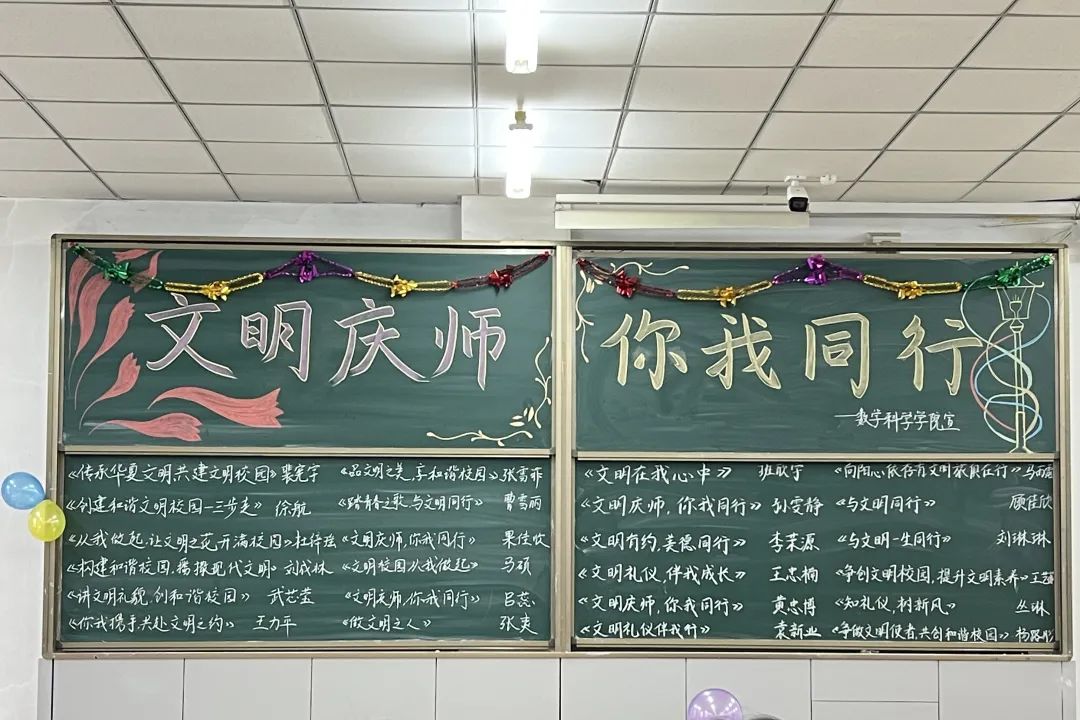 文明庆师
你我同行
——数学科学学院宣
《传承华夏文明,共建文明校园》裴宪宇
《创建和谐文明校园—三步走》 徐航
《从我做起,让文明之花开满校园》杜
《构建和谐校园,播撒现代文明》刘成林
《讲文明礼貌,创和谐校园》 武芷莹
《你我携手共赴文明之约》 王力平
《品文明之美,享和谐校园》张雪菲
《踏青春之歌,与文明同行》 曹雪丽
《文明庆师,你我同行》 果佳
《文明校园从我做起》 马硕
《文明庆师,你我同行》 吕蕊
《做文明之人》 张爽
《文明在我心中》 班欣宇
《文明庆师,你我同行》 孙雯静
《文明有约,美德同行》 李荣源
《文明礼仪,伴我成长》 王忠楠
《文明庆师,你我同行》 黄忠博
《文明礼仪伴我行》 袁新业
《向阳心 文明 在行》马
《与文明同行》 顾佳欣
《与文明一生同行》 刘琳琳
《争创文明校园,提升文明素养》王
《知礼仪,树新风》 丛琳
《争做文明使者,共创和谐校园》杨路彤